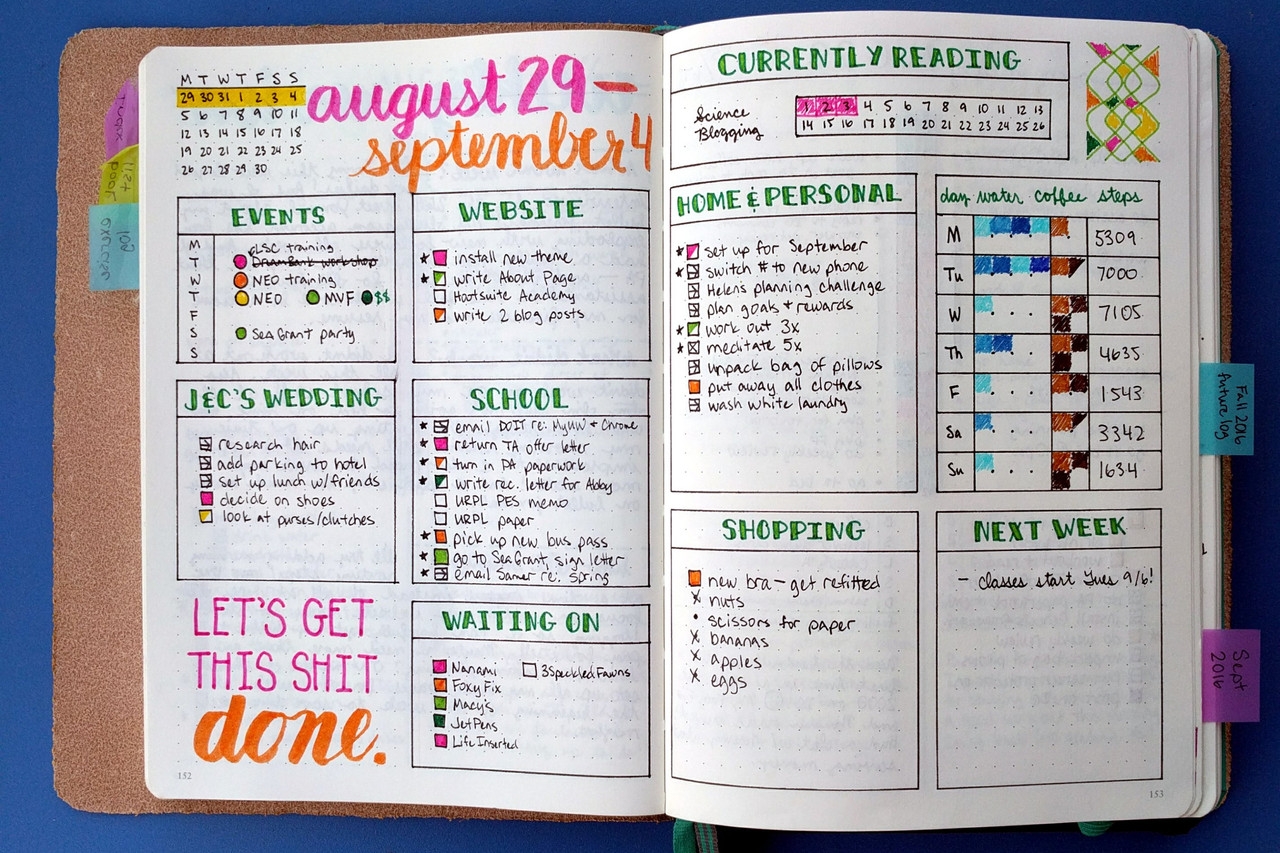 M T W T F S S
29 30 31 1 2 3 4
5 6 7 8 9 10 11
12 13 14 15 16 17 18
19 20 21 22 23 24 25
26 27 28 29 30
august 29 –
september 4
EVENTS
M LSC training
T DreamBank workshop
W NEO training
T NEO MVF $$
F
S Sea Grant party
S
WEBSITE
install new theme
write About Page
Hootsuite Academy
write 2 blog posts
J&C'S WEDDING
research hair
add parking to hotel
set up lunch w/friends
decide on shoes
look at purses/clutches
SCHOOL
email DOIT re: MyUW + Chrome
return TA offer letter
turn in PA paperwork
write rec. letter for Abby
URPL PES memo
URPL paper
pick up new bus pass
go to Sea Grant, sign letter
email Samer re: spring
LET'S GET
THIS SHIT
done.
WAITING ON
Nanami
3 Speckled Fawns
Foxy Fix
Macy's
JetPens
Life Inserted
152
CURRENTLY READING
Science
Blogging
1 2 3 4 5 6 7 8 9 10 11 12 13
14 15 16 17 18 19 20 21 22 23 24 25 26
HOME & PERSONAL
set up for September
switch # to new phone
Helen's planning challenge
plan goals + rewards
work out 3x
meditate 5x
unpack bag of pillows
put away all clothes
wash white laundry
day water coffee steps
M 5309
Tu 7000
W 7105
Th 4635
F 1543
Sa 3342
Su 1634
SHOPPING
new bra – get refitted
x nuts
• scissors for paper
x bananas
x apples
x eggs
NEXT WEEK
– classes start Tues 9/6!
153
index
exercise log
Fall 2016
future log
Sept
2016